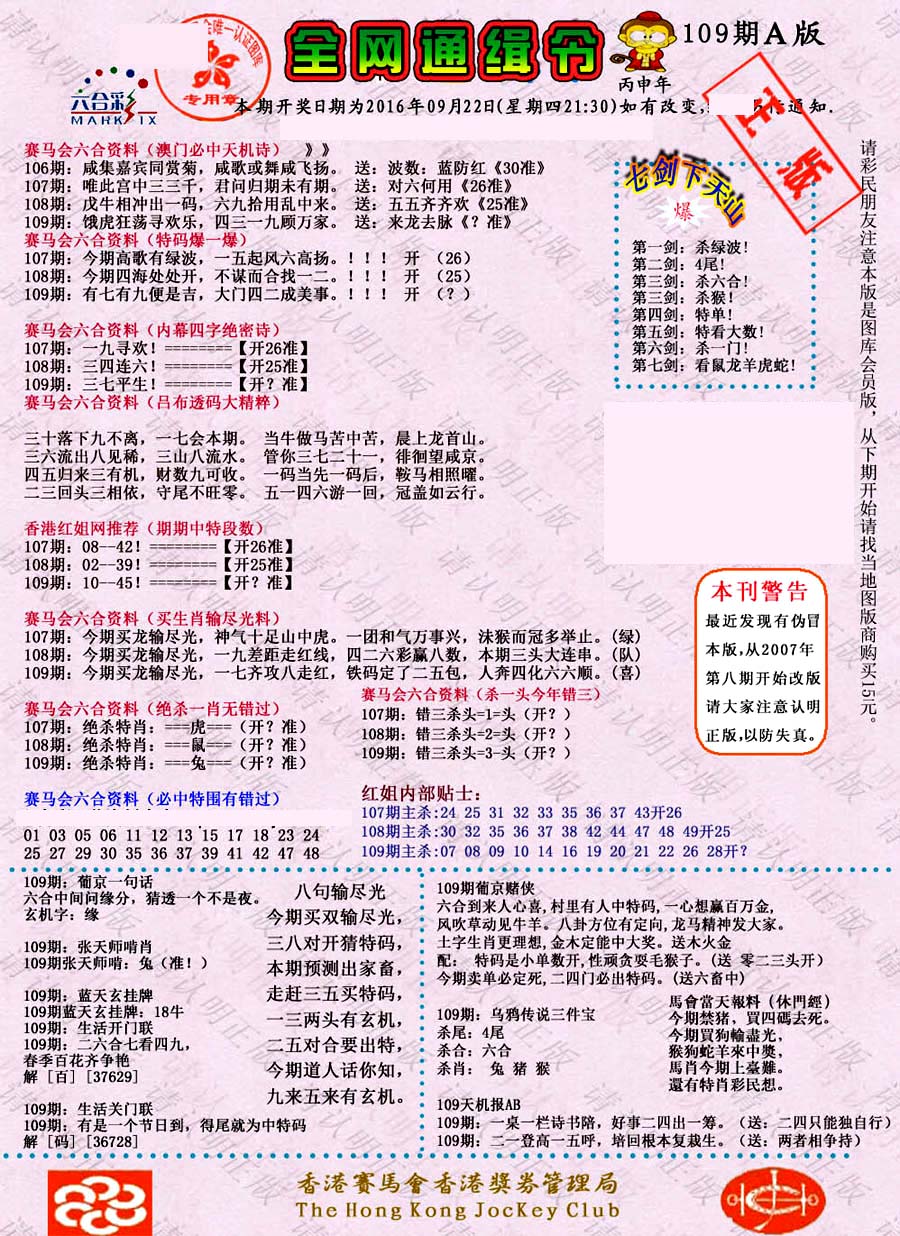 全网通缉令
109期A版
丙申年
六合彩
MARK SIX
唯一认证图库
专用章
正版
本期开奖日期为2016年09月22日(星期四21:30)如有改变,
通知.
赛马会六合资料（澳门必中天机诗） 》》
106期：咸集嘉宾同赏菊，咸歌或舞咸飞扬。 送：波数：蓝防红《30准》
107期：唯此宫中三三千，君问归期未有期。 送：对六何用《26准》
108期：戊牛相冲出一码，六九拾用乱中来。 送：五五齐齐欢《25准》
109期：饿虎狂荡寻欢乐，四三一九顾万家。 送：来龙去脉《？准》
赛马会六合资料（特码爆一爆）
107期：今期高歌有绿波，一五起风六高扬。！！！ 开 （26）
108期：今期四海处处开，不谋而合找一二。！！！ 开 （25）
109期：有七有九便是吉，大门四二成美事。！！！ 开 （？）
赛马会六合资料（内幕四字绝密诗）
107期：一九寻欢！========【开26准】
108期：三四连六！========【开25准】
109期：三七平生！========【开？准】
赛马会六合资料（吕布透码大精粹）
三十落下九不离，一七会本期。 当牛做马苦中苦，晨上龙首山。
三六流出八见稀，三山八流水。 管你三七二十一，徘徊望咸京。
四五归来三有机，财数九可收。 一码当先一码后，鞍马相照曜。
二三回头三相依，守尾不旺零。 五一四六游一回，冠盖如云行。
香港红姐网推荐（期期中特段数）
107期：08--42！========【开26准】
108期：02--39！========【开25准】
109期：10--45！========【开？准】
赛马会六合资料（买生肖输尽光料）
107期：今期买龙输尽光，神气十足山中虎。一团和气万事兴，沫猴而冠多举止。(绿)
108期：今期买龙输尽光，一九差距走红线，四二六彩赢八数，本期三头大连串。(队)
109期：今期买龙输尽光，一七齐攻八走红，铁码定了二五包，人奔四化六六顺。(喜)
赛马会六合资料（绝杀一肖无错过）
107期：绝杀特肖：===虎===（开？准）
108期：绝杀特肖：===鼠===（开？准）
109期：绝杀特肖：===兔===（开？准）
赛马会六合资料（杀一头今年错三）
107期：错三杀头=1=头（开？）
108期：错三杀头=2=头（开？）
109期：错三杀头=3-头（开？）
赛马会六合资料（必中特围有错过）
01 03 05 06 11 12 13 15 17 18 23 24
25 27 29 30 35 36 37 39 41 42 47 48
红姐内部贴士：
107期主杀:24 25 31 32 33 35 36 37 43开26
108期主杀:30 32 35 36 37 38 42 44 47 48 49开25
109期主杀:07 08 09 10 14 16 19 20 21 22 26 28开?
七剑下天山
爆
第一剑：杀绿波！
第二剑：4尾！
第三剑：杀六合！
第三剑：杀猴！
第四剑：特单！
第五剑：特看大数！
第六剑：杀一门！
第七剑：看鼠龙羊虎蛇！
本刊警告
最近发现有伪冒
本版,从2007年
第八期开始改版
请大家注意认明
正版,以防失真。
请彩民朋友注意本版是图库会员版，从下期开始请找当地图版商购买15元。
109期：葡京一句话
六合中间问缘分，猜透一个不是夜。
玄机字：缘
109期：张天师啃肖
109期张天师啃：兔（准！）
109期：蓝天玄挂牌
109期蓝天玄挂牌：18牛
109期：生活开门联
109期：二六合七看四九，
春季百花齐争艳
解［百］[37629]
109期：生活关门联
109期：有是一个节日到，得尾就为中特码
解［码］[36728]
八句输尽光
今期买双输尽光，
三八对开猜特码，
本期预测出家畜，
走赶三五买特码，
一三两头有玄机，
二五对合要出特，
今期道人话你知，
九来五来有玄机。
109期葡京赌侠
六合到来人心喜,村里有人中特码,一心想赢百万金,
风吹草动见牛羊。八卦方位有定向,龙马精神发大家。
土字生肖更理想,金木定能中大奖。送木火金
配： 特码是小单数开,性顽贪耍毛猴子。(送 零二三头开)
今期卖单必定死,二四门必出特码。(送六畜中)
109期：乌鸦传说三件宝
杀尾：4尾
杀合：六合
杀肖： 兔 猪 猴
馬會當天報料（休門經）
今期禁猪、買四碼去死。
今期買狗輸盡光，
猴狗蛇羊來中獎，
馬肖今期上臺難。
還有特肖彩民想。
109天机报AB
109期：一桌一栏诗书陪，好事二四出一筹。（送：二四只能独自行）
109期：二一登高一五呼，培回根本复栽生。（送：两者相争持）
香港賽馬會香港獎券管理局
The Hong Kong JocKey Club
请认明正版